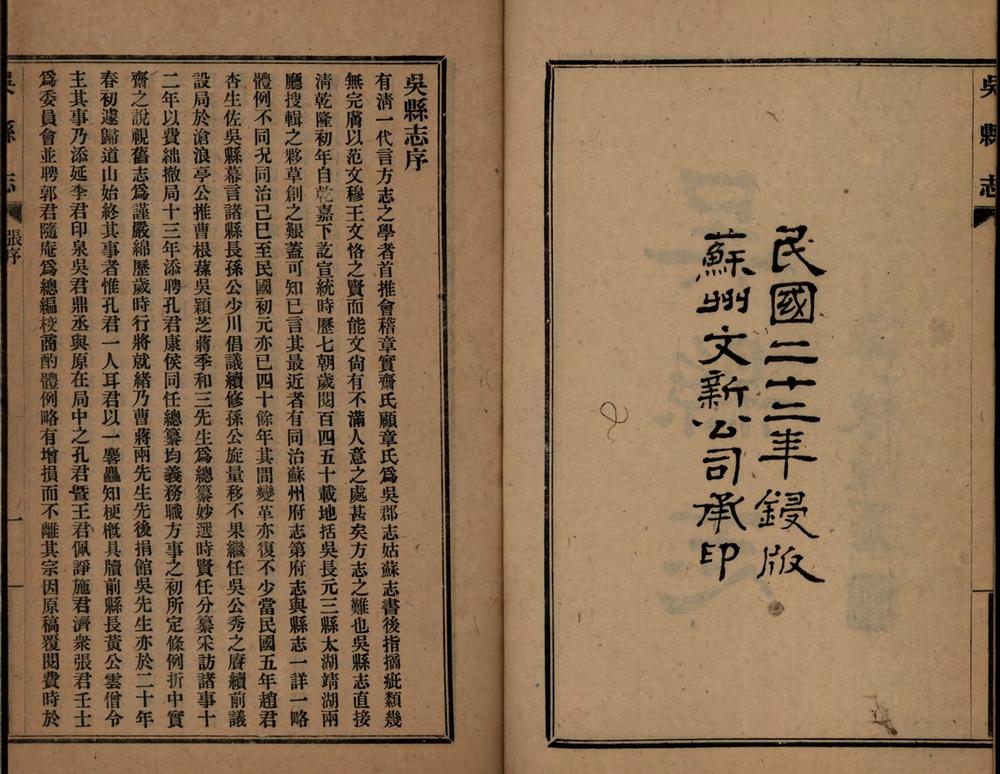 吳縣志
民國二十二年鋟版
蘇州文新公司承印
吳縣志序
有清一代言方志之學者首推會稽章實齋氏顧章氏爲吳郡志姑蘇志書後指摘疵纇幾
無完膚以范文穆王文恪之賢而能文尙有不滿人意之處甚矣方志之難也吳縣志直接
淸乾隆初年自乾嘉下訖宣統時歷七朝歲閱百四五十載地括吳長元三縣太湖靖湖兩
廳搜輯之夥草創之艱蓋可知已言其最近者有同治蘇州府志第府志與縣志一詳一略
體例不同況同治己巳至民國初元亦已四十餘年其間變革亦復不少當民國五年趙君
杏生佐吳縣幕言諸縣長孫公少川倡議續修孫公旋量移不果繼任吳公秀之賡續前議
設局於滄浪亭公推曹根蓀吳穎芝蔣季和三先生爲總纂妙選時賢任分纂采訪諸事十
二年以費絀撤局十三年添聘孔君康侯同任總纂均義務職方事之初所定條例折中實
齋之說視舊志爲謹嚴綿歷歲時行將就緒乃曹蔣兩先生先後捐館吳先生亦於二十年
春初遽歸道山始終其事者惟孔君一人耳君以一夔蠱知梗槪具牘前縣長黃公雲僧令
主其事乃添延李君印泉吳君鼎丞與原在局中之孔君曁王君佩諍施君濟衆張君壬士
爲委員會並聘郭君隨庵爲總編校商酌體例略有增損而不離其宗因原稿覆閱費時於
吳縣志
張序
一